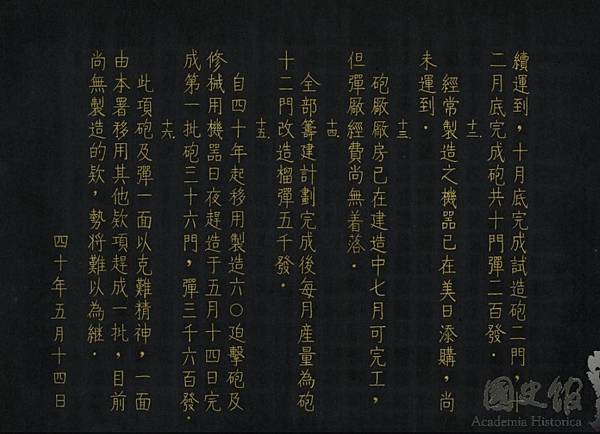 續運到，十月底完成試造砲二門，十
二月底完成砲共十門彈二百發．
十二、
經常製造之機器已在美日添購，尚
未運到．
十三、
砲廠廠房已在建造中七月可完工，
但彈廠經費尚無着落．
十四、
全部籌建計劃完成後每月產量為砲
十二門改造榴彈五千發．
十五、
自四十年起移用製造六〇迫擊砲及
修械用機器日夜趕造于五月十四日完
成第一批砲三十六門，彈三千六百發．
十六、
此項砲及彈一面以克難精神，一面
由本署移用其他欵項趕成一批，目前
尚無製造的欵，勢將難以為継．
四十年五月十四日
國史館
Academia Historica